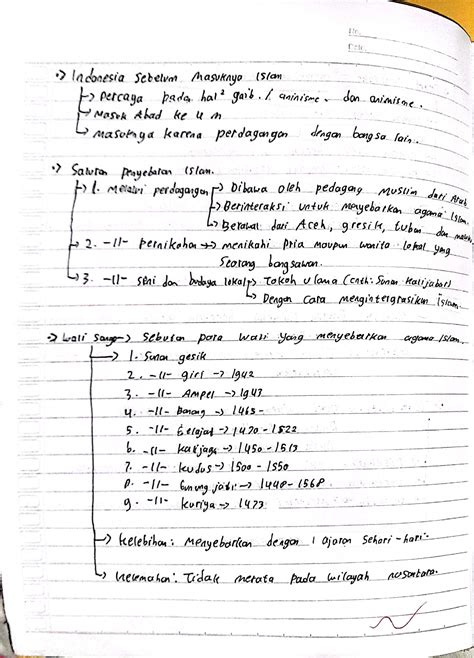 No.
Date.
•> Indonesia Sebelum Masuknya Islam
↳> Percaya pada hal² gaib / aninisme. dan animisme.
↳> Masuk Abad ke 4 M
↳> Masuknya karena perdagangan dengan bangsa lain.
•> Saluran Penyebaran Islam.
↳> 1. Melalui perdagangan ↳> Dibawa oleh pedagang Muslim dari Arab
↳> Berinteraksi untuk menyebarkan agama Islam.
↳> Berawal dari Aceh, gresik, tuban dan
↳> 2. -11- pernikahan ↔ menikahi pria maupun wanita lokal yang
Seorang bangsawan.
↳> 3. -11- seni dan budaya lokal ↳> Tokoh ulama (cnth: Sunan Kalijaga)
↳> Dengan cara mengintergrasikan Islam.
•> Wali Songo -> Sebutan para wali yang menyebarkan agama Islam.
↳> 1. Sunan gesik
2. -11- giri -> 1942
3. -11- Ampel -> 1947
4. -11- Bonang -> 1465-
5. -11- Derajad -> 1470 - 1522
6. -11- Kalijaga -> 1450 - 1513
7. -11- Kudus -> 1500 - 1550
8. -11- Gunung jati -> 1448 - 1568
9. -11- Muriya -> 1473
↳> Kelebihan: Menyebarkan dengan ajaran Sehari-hari.
↳> Kelemahan: Tidak merata pada wilayah nusantara.